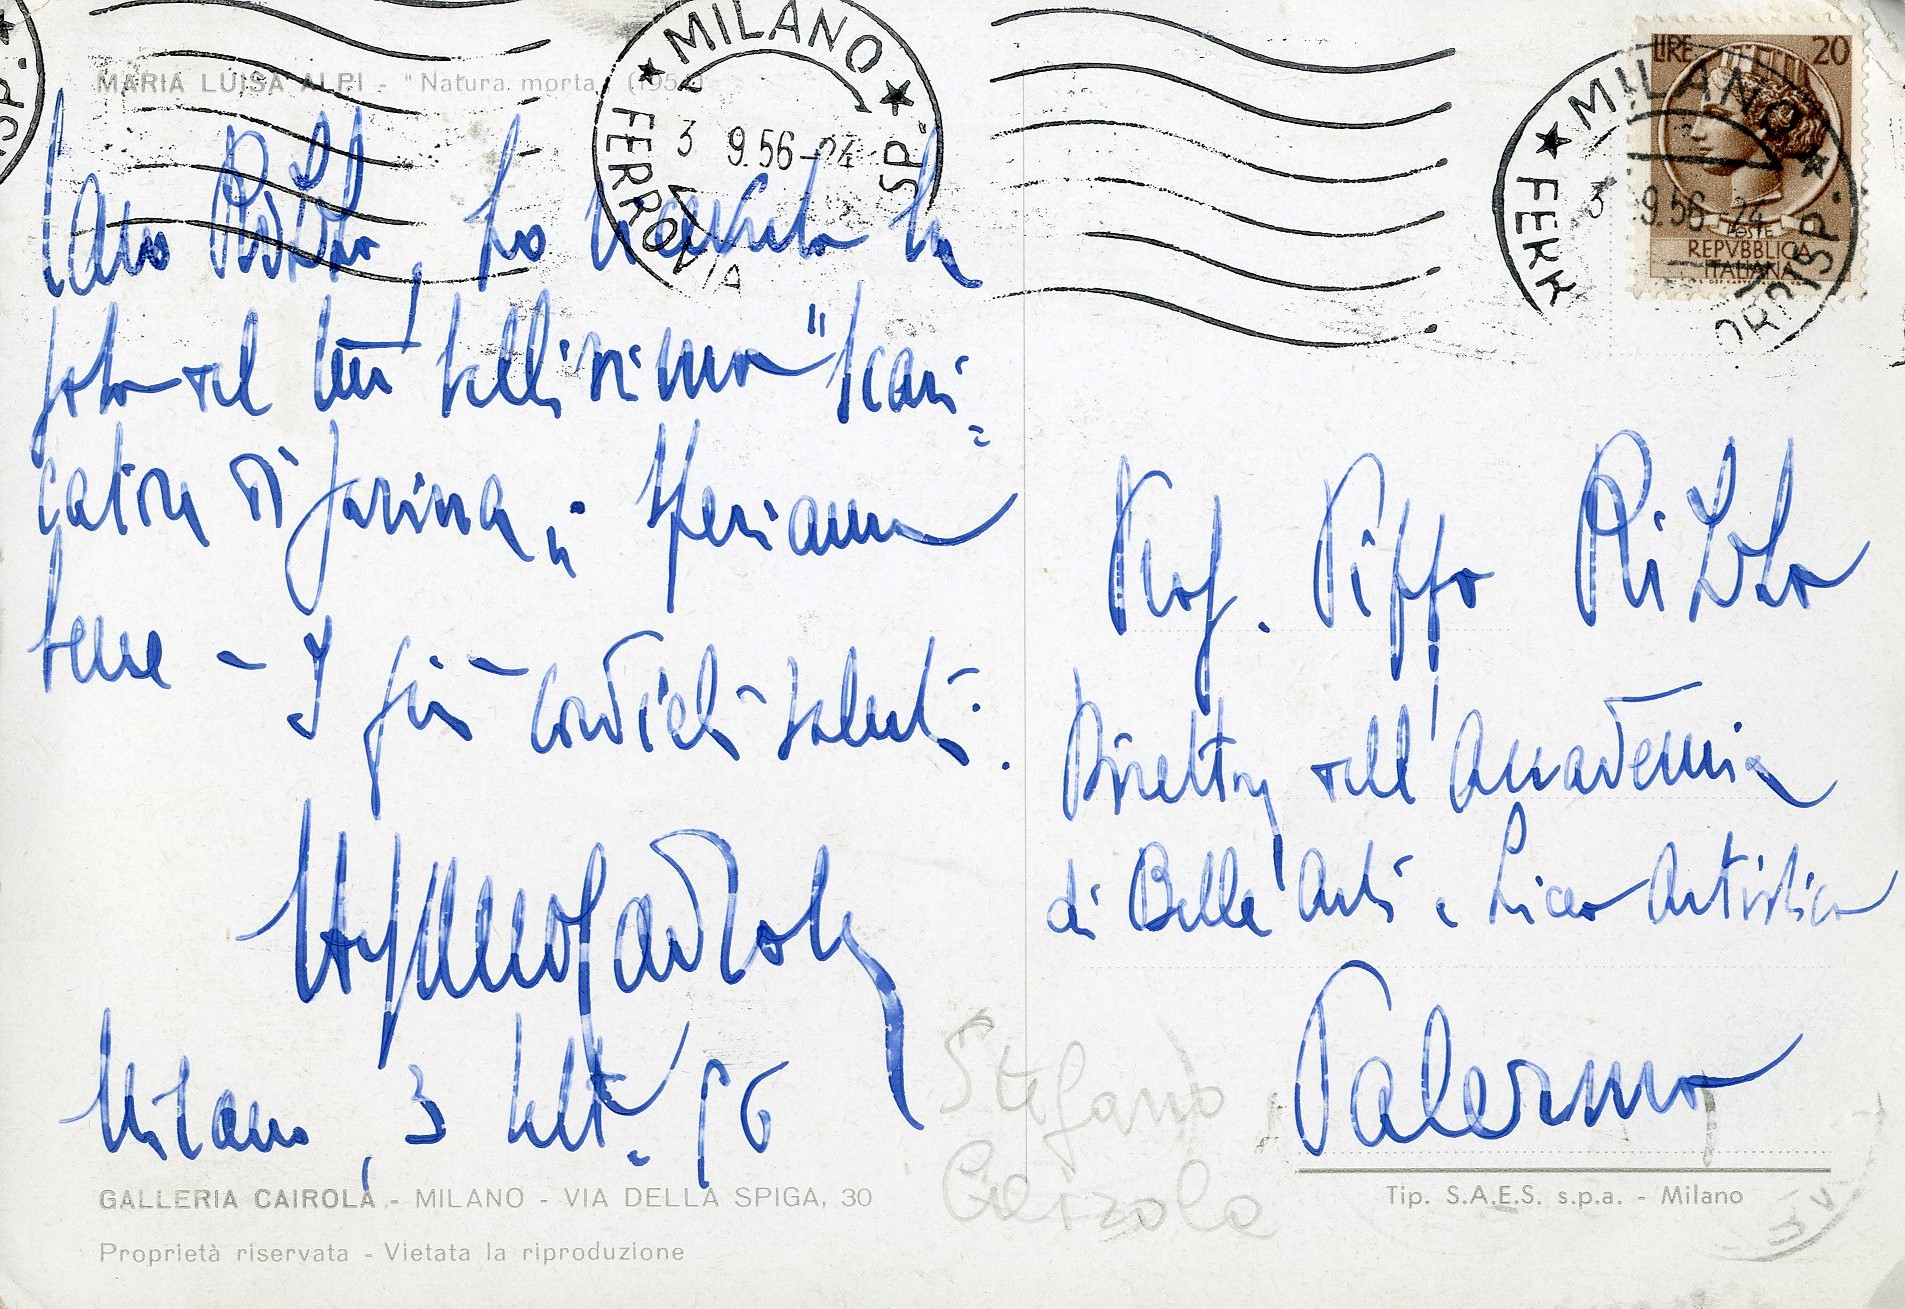 MARIA LUISA ALPI - "Natura morta" (195
Caro Rizzo, ho trovato la
foto del tuo bellissimo "Scari=
catori di farina„: Speriamo
bene - I più cordiali saluti.
Stefano Cairola
Milano, 3 sett. 56
GALLERIA CAIROLA - MILANO - VIA DELLA SPIGA, 30
Proprietà riservata - Vietata la riproduzione
MILANO
FERROVIA
3 9.56-24
LIRE 20
POSTE
REPVBBLICA
ITALIANA
MILANO
3 9.56 24
Prof. Pippo Rizzo
Direttore dell'Accademia
di Belle Arti e Liceo Artistico
Palermo
Stefano
Cairola
Tip. S.A.E.S. s.p.a. - Milano